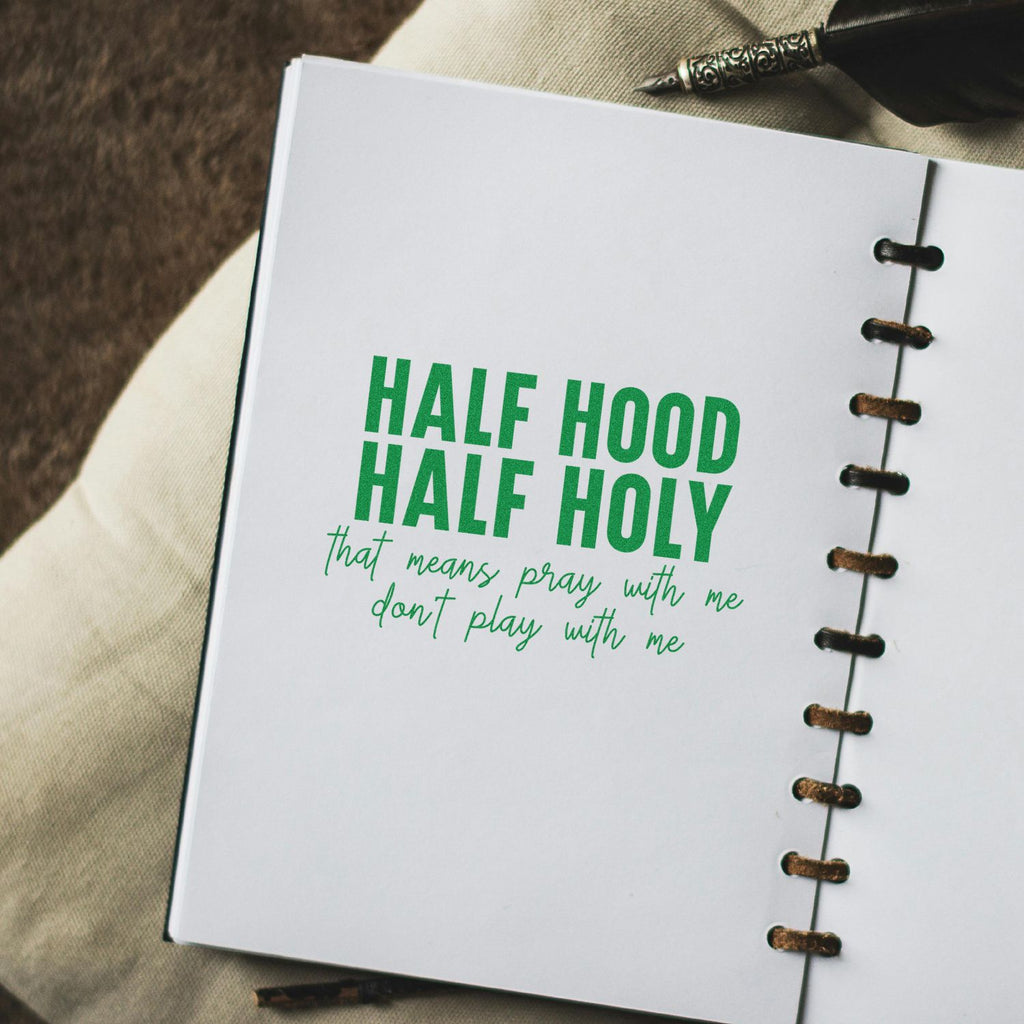 HALF HOOD
HALF HOLY
that means pray with me
don't play with me